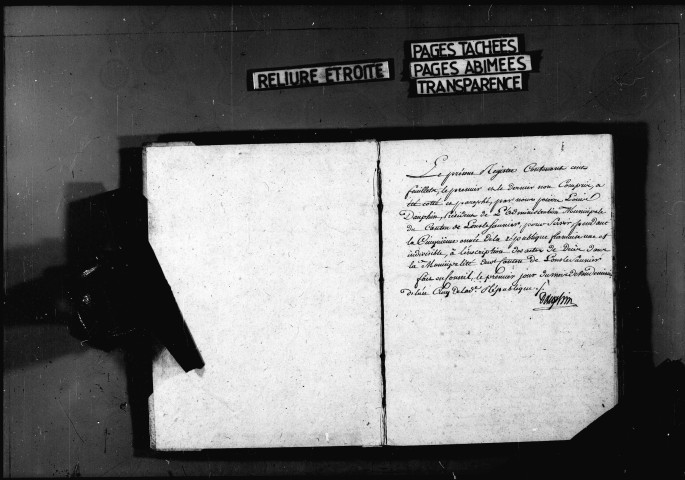 RELIURE ETROITE
PAGES TACHÉES
PAGES ABIMÉES
TRANSPARENCE
Le présent Registre Contenant cent
feuillets, le premier et le dernier non Compris, a
été cotté et paraphé, par nous
Dauphin, Président de L'administration Municipale
du Canton de Lonslesaunier, pour servir pendant
la Cinquième année de la république française une et
indivisible, à l'inscription des actes de Décès dans
la Municipalité dudt Canton de Lonslesaunier
fait en Conseil, le premier jour du mois de Vendemiaire
de l'an Cinq de lad.e République./.
Dauphin